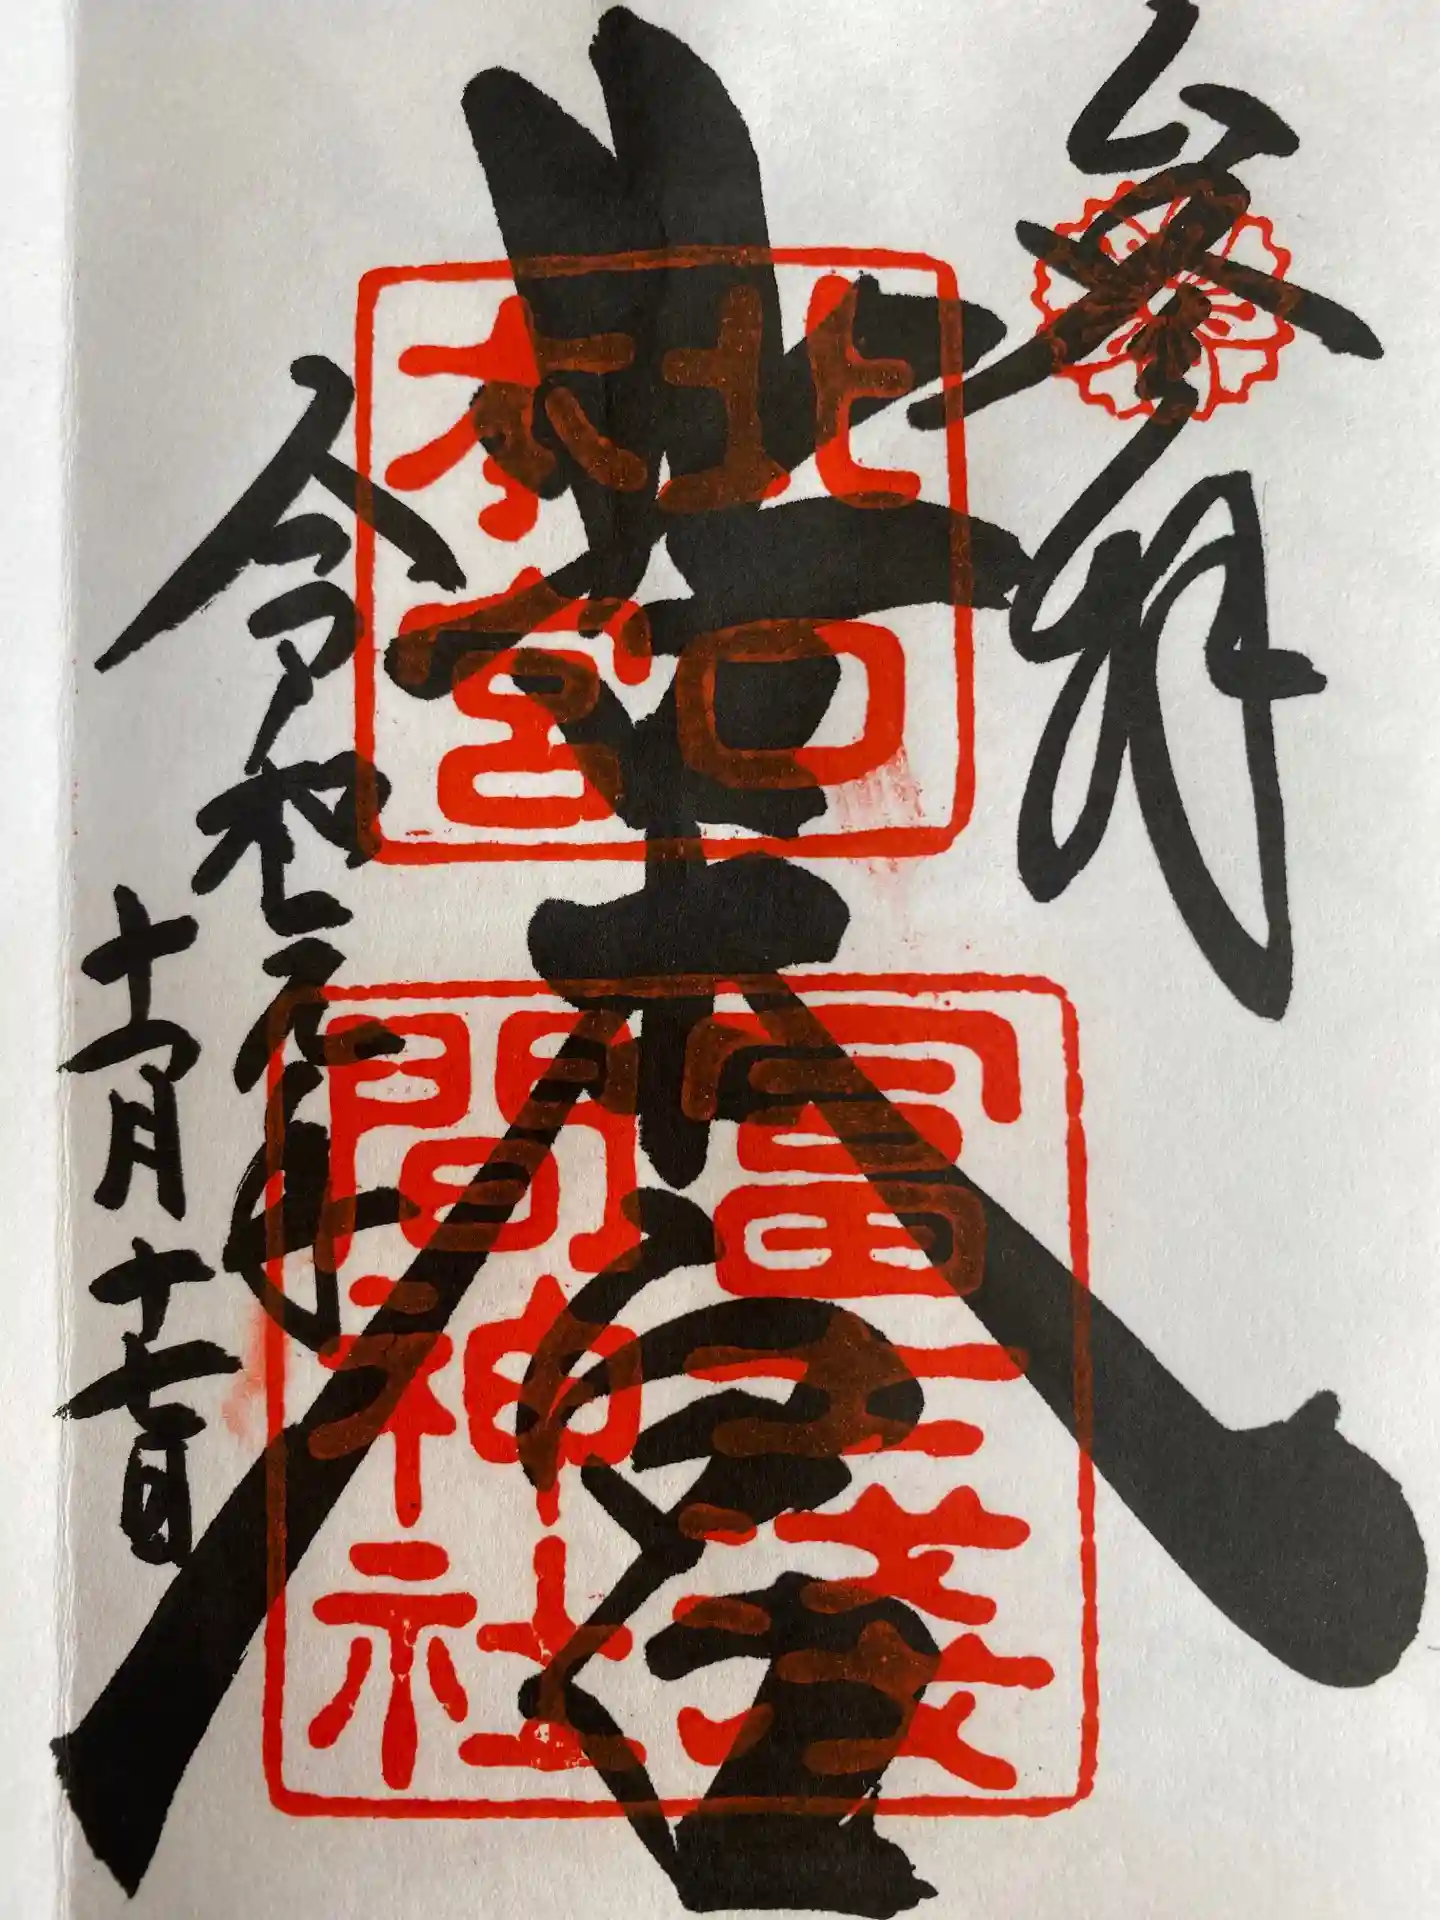 参拝
北口本宮
北口
本宮
冨士淺
間神社
令和元年
十一月十七日